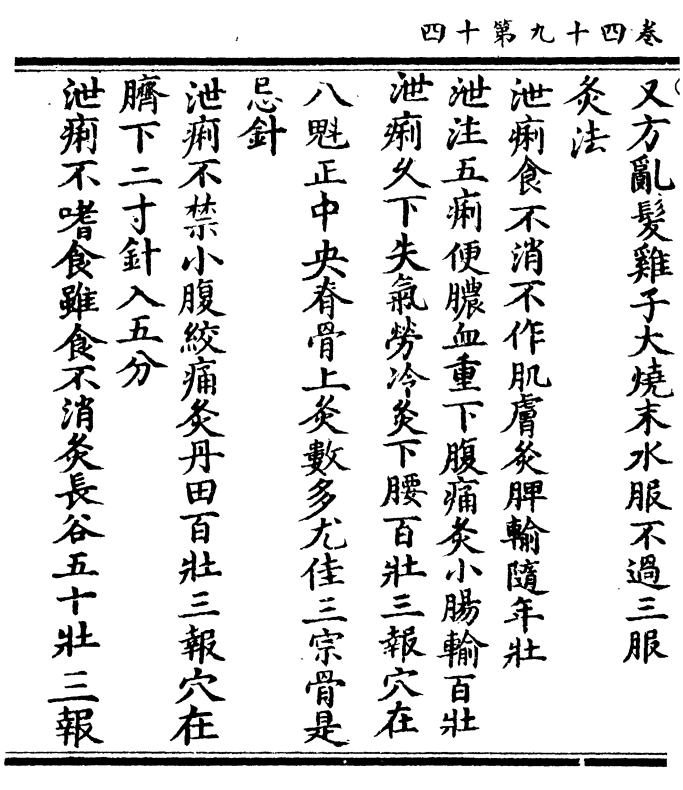 卷四十九第十四
又方亂髮雞子大燒末水服不過三服
灸法
泄痢食不消不作肌膚灸脾輸隨年壯
泄注五痢便膿血重下腹痛灸小腸輸百壯
泄痢久下失氣勞冷灸下腰百壯三報穴在
八魁正中央脊骨上灸數多尤佳三宗骨是
忌針
泄痢不禁小腹絞痛灸丹田百壯三報穴在
臍下二寸針入五分
泄痢不嗜食雖食不消灸長谷五十壯三報